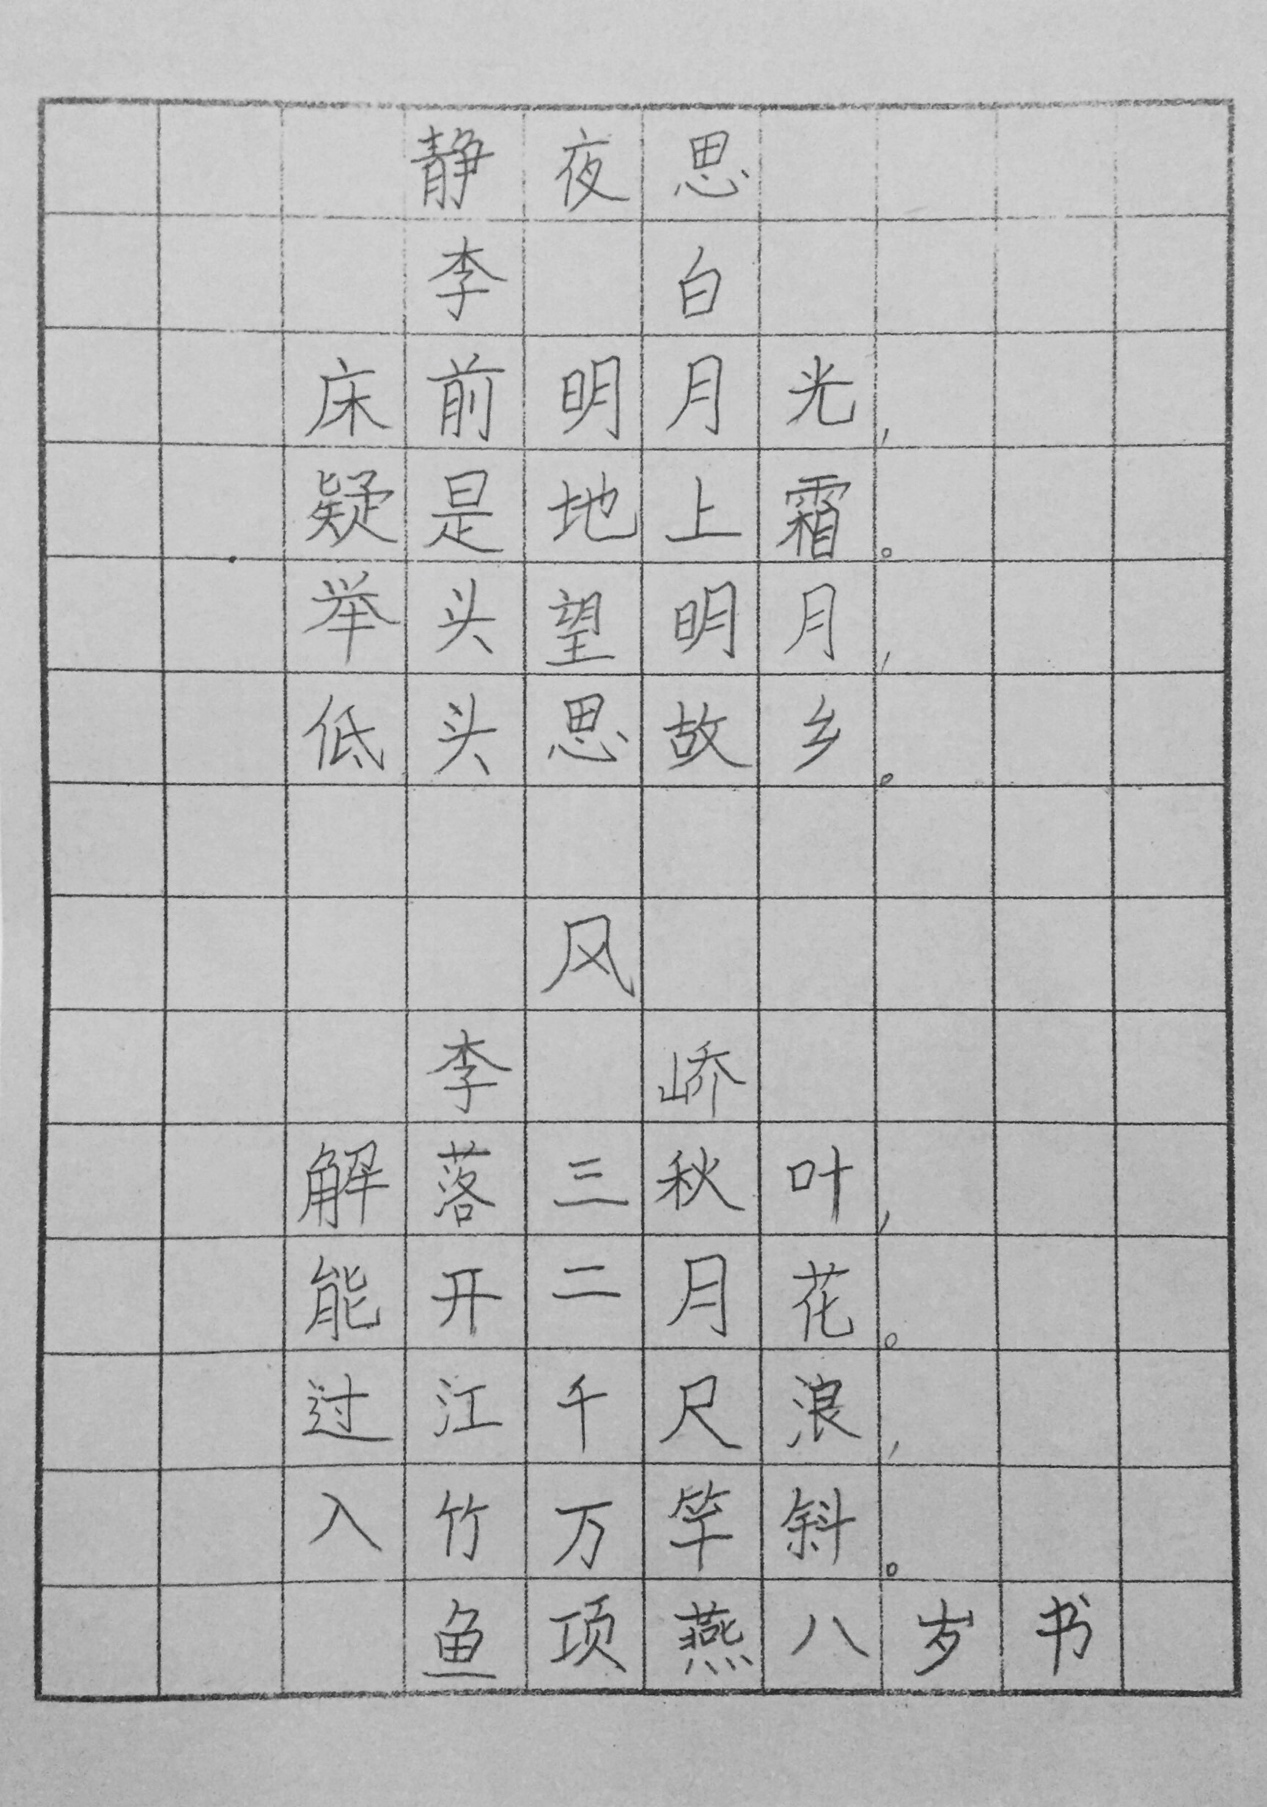 静夜思
李 白
床前明月光,
疑是地上霜。
举头望明月,
低头思故乡。
风
李 峤
解落三秋叶,
能开二月花。
过江千尺浪,
入竹万竿斜。
鱼项燕八岁书